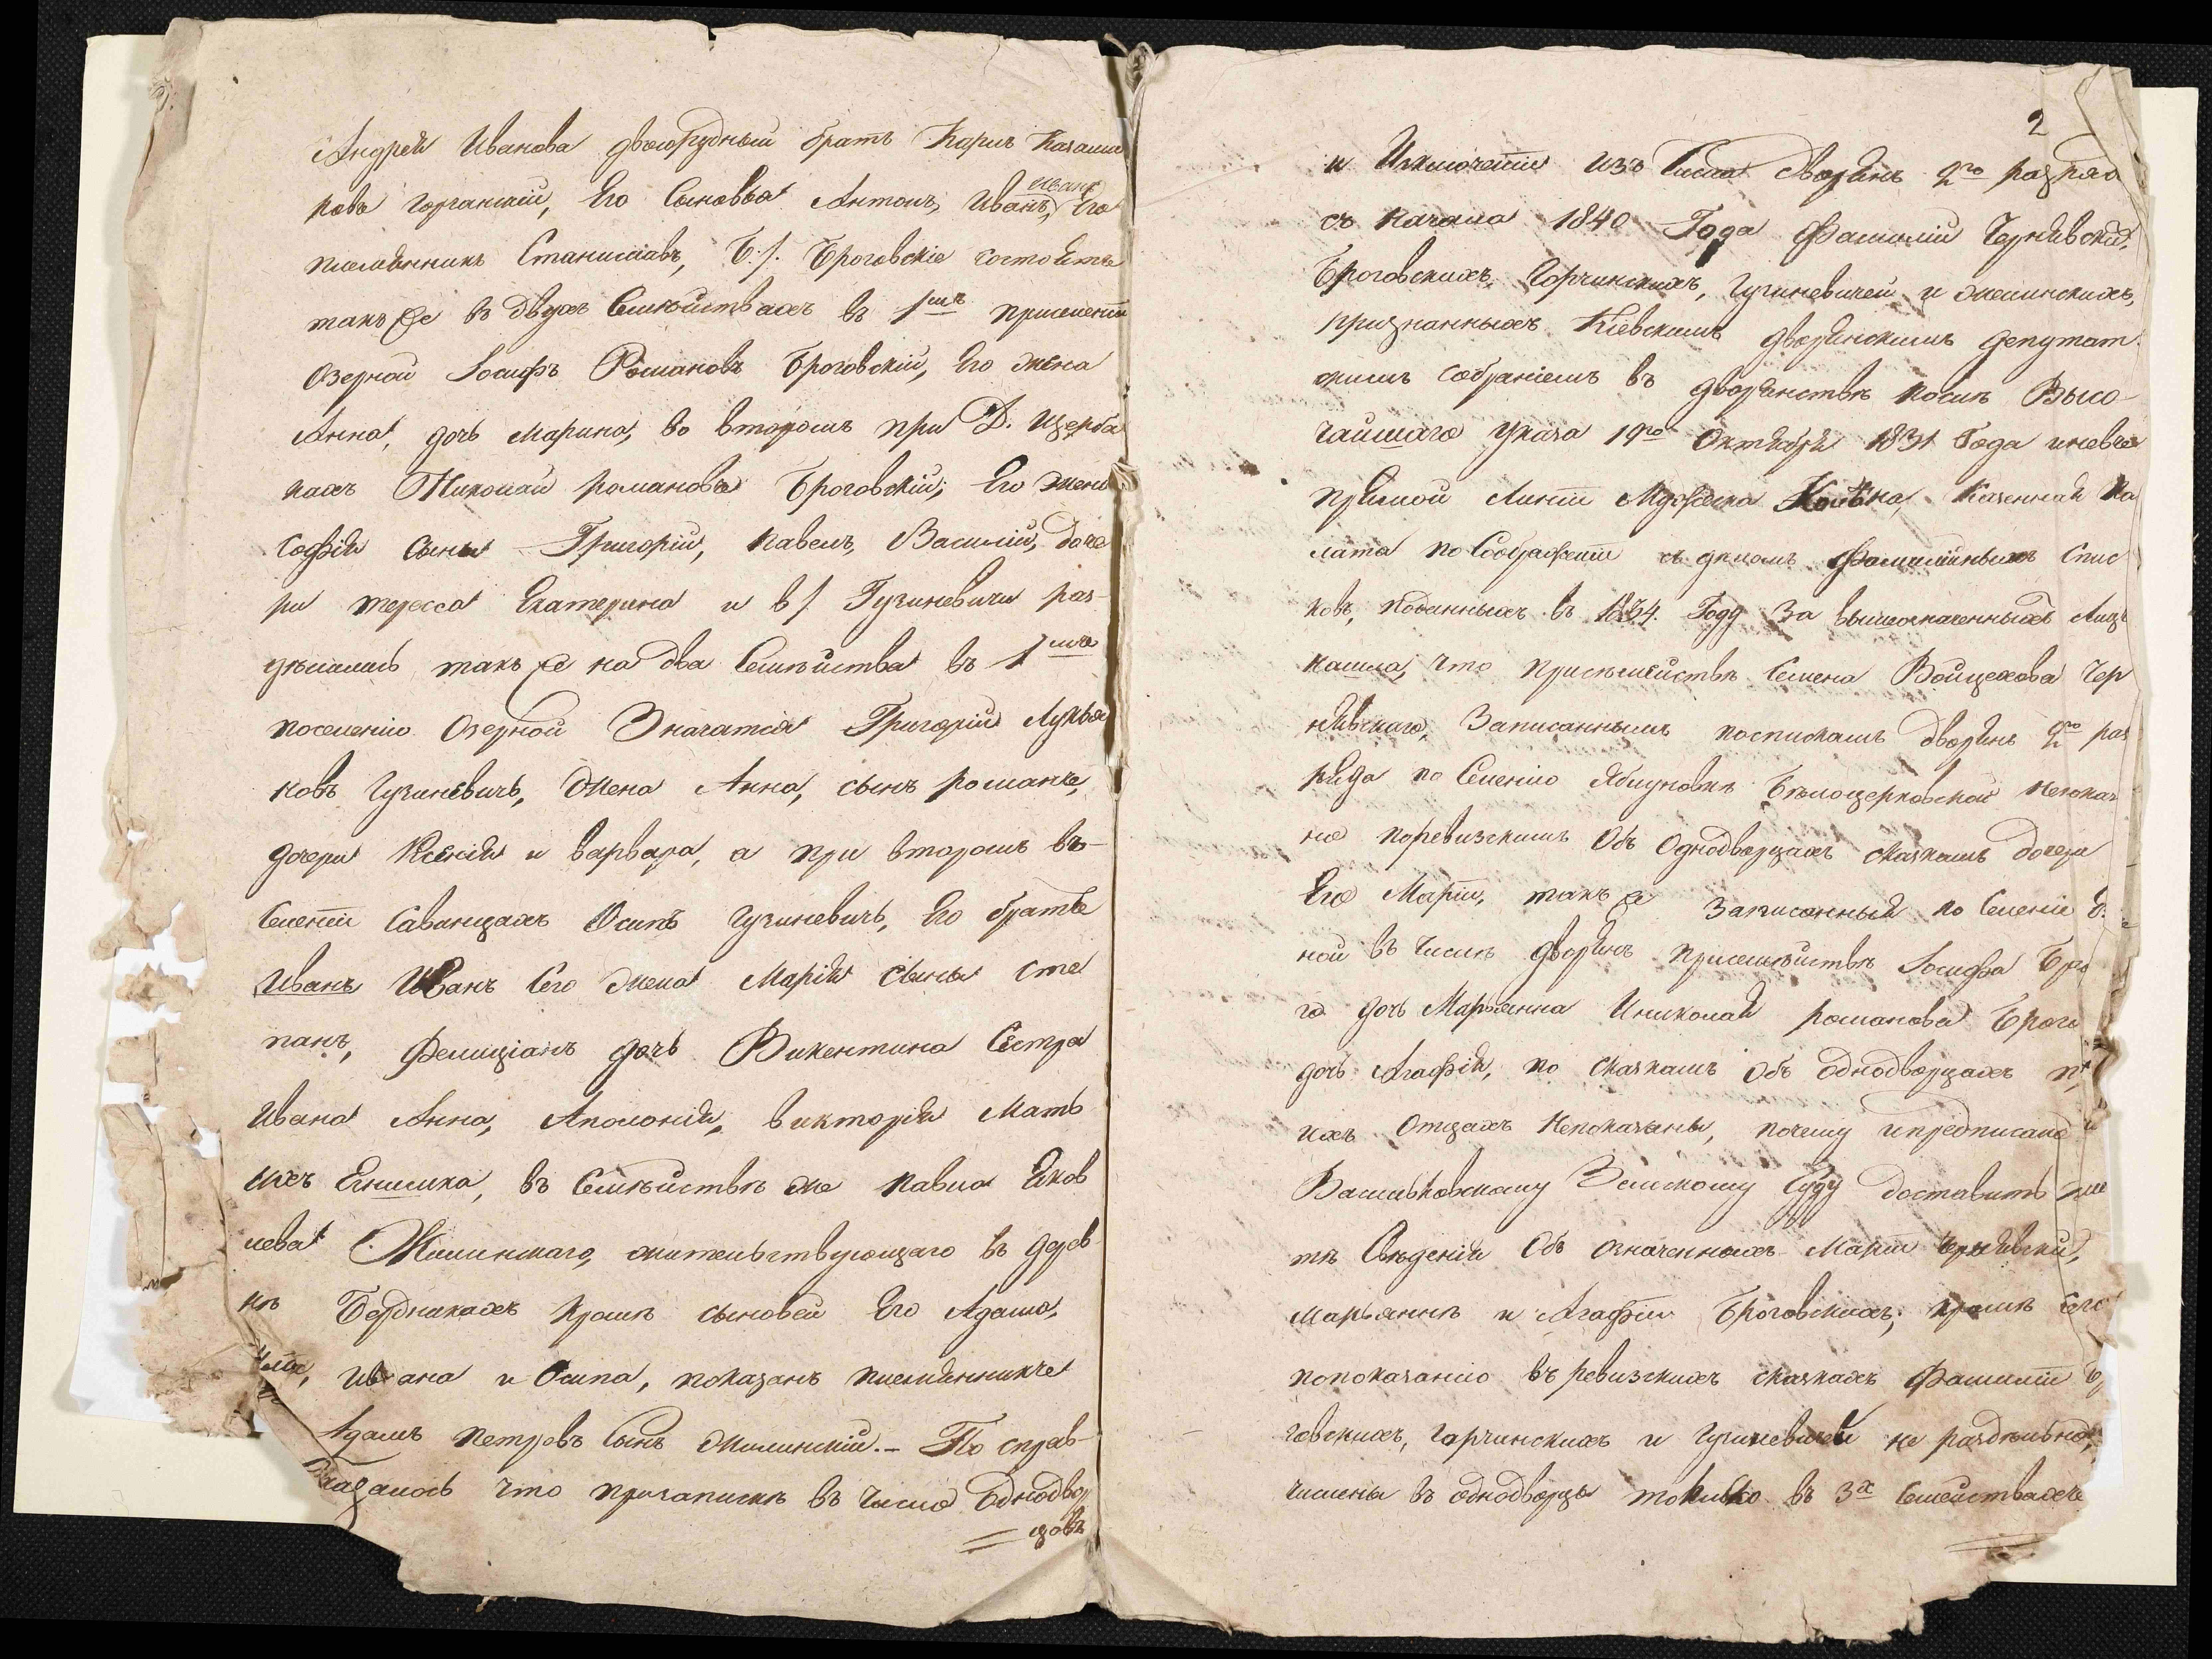 Андрея Иванова двоюрудный братъ Карлъ Казими
ровъ Горчинскій, Его Сыновья Антонъ, Иванъ, Его
племянникъ Станиславъ, Броговскіе состоятъ
такъ же въ двухъ Семѣйствахъ въ 1мъ приселеніи
Озерной Іосифъ Романовъ Броговскій, Его жена
Анна, дочь Марина, во второмъ при Д. Щерба
кахъ Николай романовъ Броговскій, Его жена
Софія Сыны Григорій, павелъ, Василій, доче
ри тересса Екатерина и Гугиневичи раз-
дѣлились такъ же на два Семѣйства въ 1мъ
поселенію Озерной Значатся Григорій Лукья
новъ Гугиневичь, Жена Анна, сынъ романъ,
дочери Ксенія и варвара, а при второмъ въ-
Селеніи Саванцахъ Осипъ Гугиневичь, Его братъ
Иванъ Иванъ Его жена Марія сыны сте
панъ, Фелиціанъ дочь Викентина Сестра
Ивана Анна, Аполонія, викторія Мать
ихъ, въ Семѣйствѣ же павла Яков
лева Жилинскаго, жительствующаго въ дерев
нѣ Бердникахъ кромѣ сыновей Его Адама,
Ивана и Осипа, показанъ племянникъ
Адамъ петровъ Сынъ Жилинскій.- По справ-
казалось что призапискѣ въ число Однодвор
цовъ
2
и Изключеніи изъ Числа дворянъ 2го разряд
съ начала 1840 Года Фамиліи Чернявскихъ,
Броговскихъ, Горчинскихъ, Гугиневичей и жилинскихъ,
признанныхъ Кіевскимъ дворянскимъ депутат
скимъ собраніемъ въ дворянствѣ послѣ Высо-
чайшаго указа 19го Октября 1831 Года
прямой Линіи Мужеска Колѣна, Казенная Па
лата по Соображеніи съ дѣломъ Фамилійныхъ Спис
ковъ, поданныхъ въ 1834. Году За вышеозначенныхъ Лицъ
нашла, что присѣмействѣ Семена Войцехова Чер
нявскаго, Записаннымъ поспискамъ дворянъ 2го раз
ряда по Селенію Яблуновкѣ Бѣлоцерковской непоказ
но поревизскимъ Объ Однодворцахъ сказкамъ дочери
Его Маріи, такъ же Записанныя по Селенію
ной въ Числѣ дворянъ присемѣйствѣ Іосифа Бро
го дочь Марьянна Иниколая романова Брого
дочь Агафія, по сказкамъ Объ Однодворцахъ
ихъ Отцахъ Непоказаны, почему и предписано
Васильковскому Земскому Суду доставить
Свѣденія Объ означенныхъ Маріи Чернявской,
Марьяннѣ и Агафіи Броговскихъ, кромѣ сего
попоказанію въ ревизскихъ сказкахъ Фамиліи
говскихъ, Горчинскихъ и Гугиневичей не раздѣльно,
числены въ однодворцы только въ 3х Семействахъ